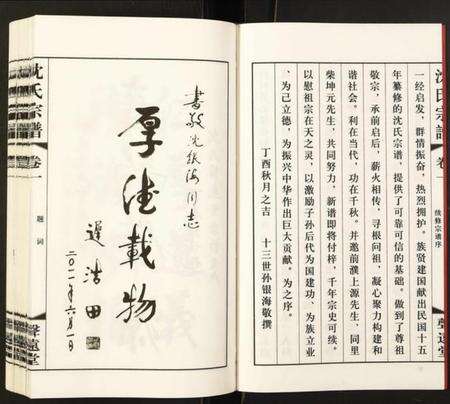 沈氏宗譜 卷一
续修宗谱序
聲遠堂
一经启发，群情振奋，热烈拥护。族贤建国献出民国十五
年纂修的沈氏宗谱，提供了可靠可信的基础。做到了尊祖
敬宗，承前启后，薪火相传，寻根问祖，凝心聚力构建和
谐社会。利在当代，功在千秋。并邀前濮上源先生，同里
柴坤元先生，共同努力，新谱即将付梓，千年宗史可续。
以慰祖宗在天之灵，以激励子孙后代为国建功、为族立业
、为己立德，为振兴中华作出巨大贡献。为之序。
丁酉秋月之吉 十三世孙银海敬撰
书敬沈银海同志
厚德載物
遲浩田
二〇一一年六月一日
沈氏宗譜 卷一
题词
聲遠堂